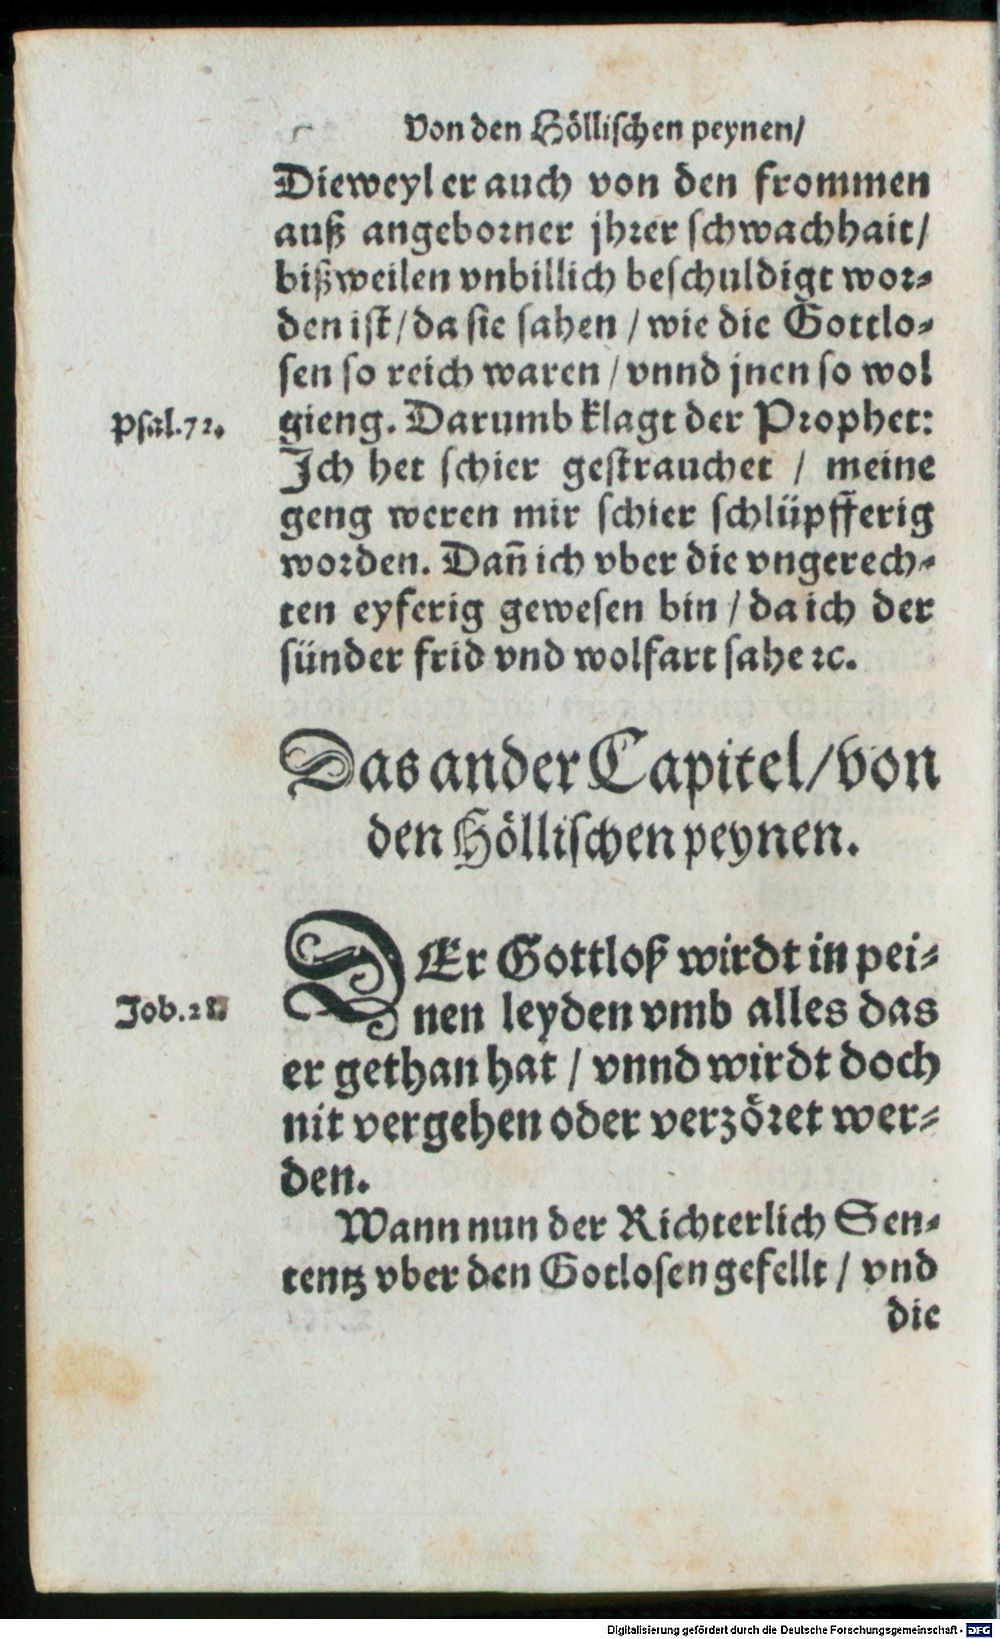 Von den Höllischen peynen/
Dieweyl er auch von den frommen
auß angeborner jhrer schwachhait/
bißweilen vnbillich beschuldigt wor-
den ist/ da sie sahen / wie die Gottlo-
sen so reich waren / vnnd jnen so wol
Psal.72.
gieng. Darumb klagt der Prophet:
Jch het schier gestrauchet / meine
geng weren mir schier schlüpfferig
worden. Dañ ich vber die vngerech-
ten eyferig gewesen bin / da ich der
sünder frid vnd wolfart sahe ꝛc.
Das ander Capitel/ von
den Höllischen peynen.
DEr Gottloß wirdt in pei-
Job.
nen leyden vmb alles das
er gethan hat / vnnd wirdt doch
nit vergehen oder verzöret wer-
den.
Wann nun der Richterlich Sen-
tentz vber den Gotlosen gefellt / vnd
die
Digitalisierung gefördert durch die Deutsche Forschungsgemeinschaft - DFG